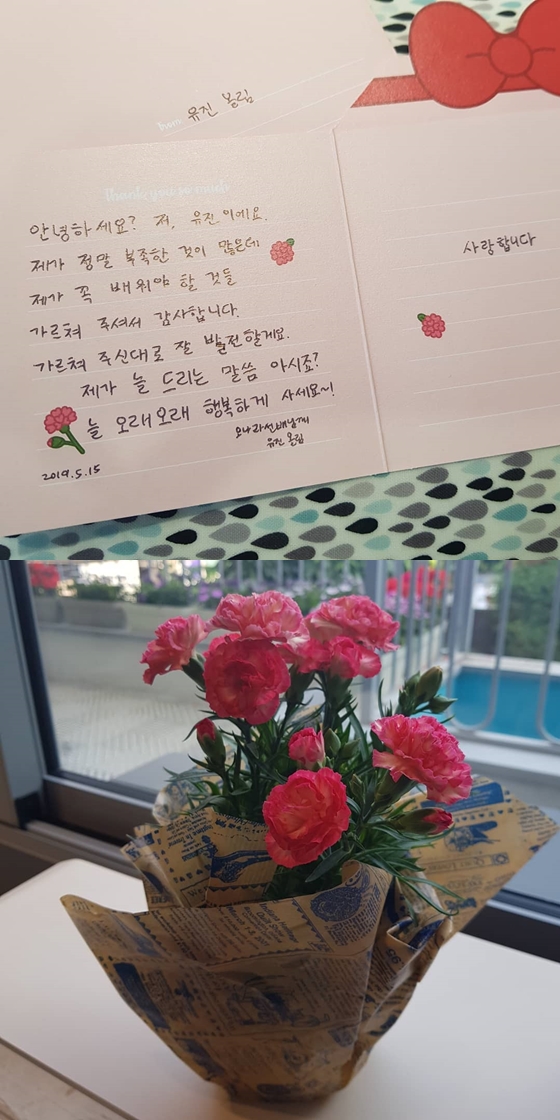 유진 올림
Thank you so much
안녕하세요? 저, 유진이에요.
제가 정말 부족한 것이 많은데
제가 꼭 배워야 할 것들
가르쳐 주셔서 감사합니다.
가르쳐 주신대로 잘 발전할게요.
제가 늘 드리는 말씀 아시죠?
늘 오래오래 행복하게 사세요~!
오나라선배님께
유진 올림
2019.5.15
사랑합니다